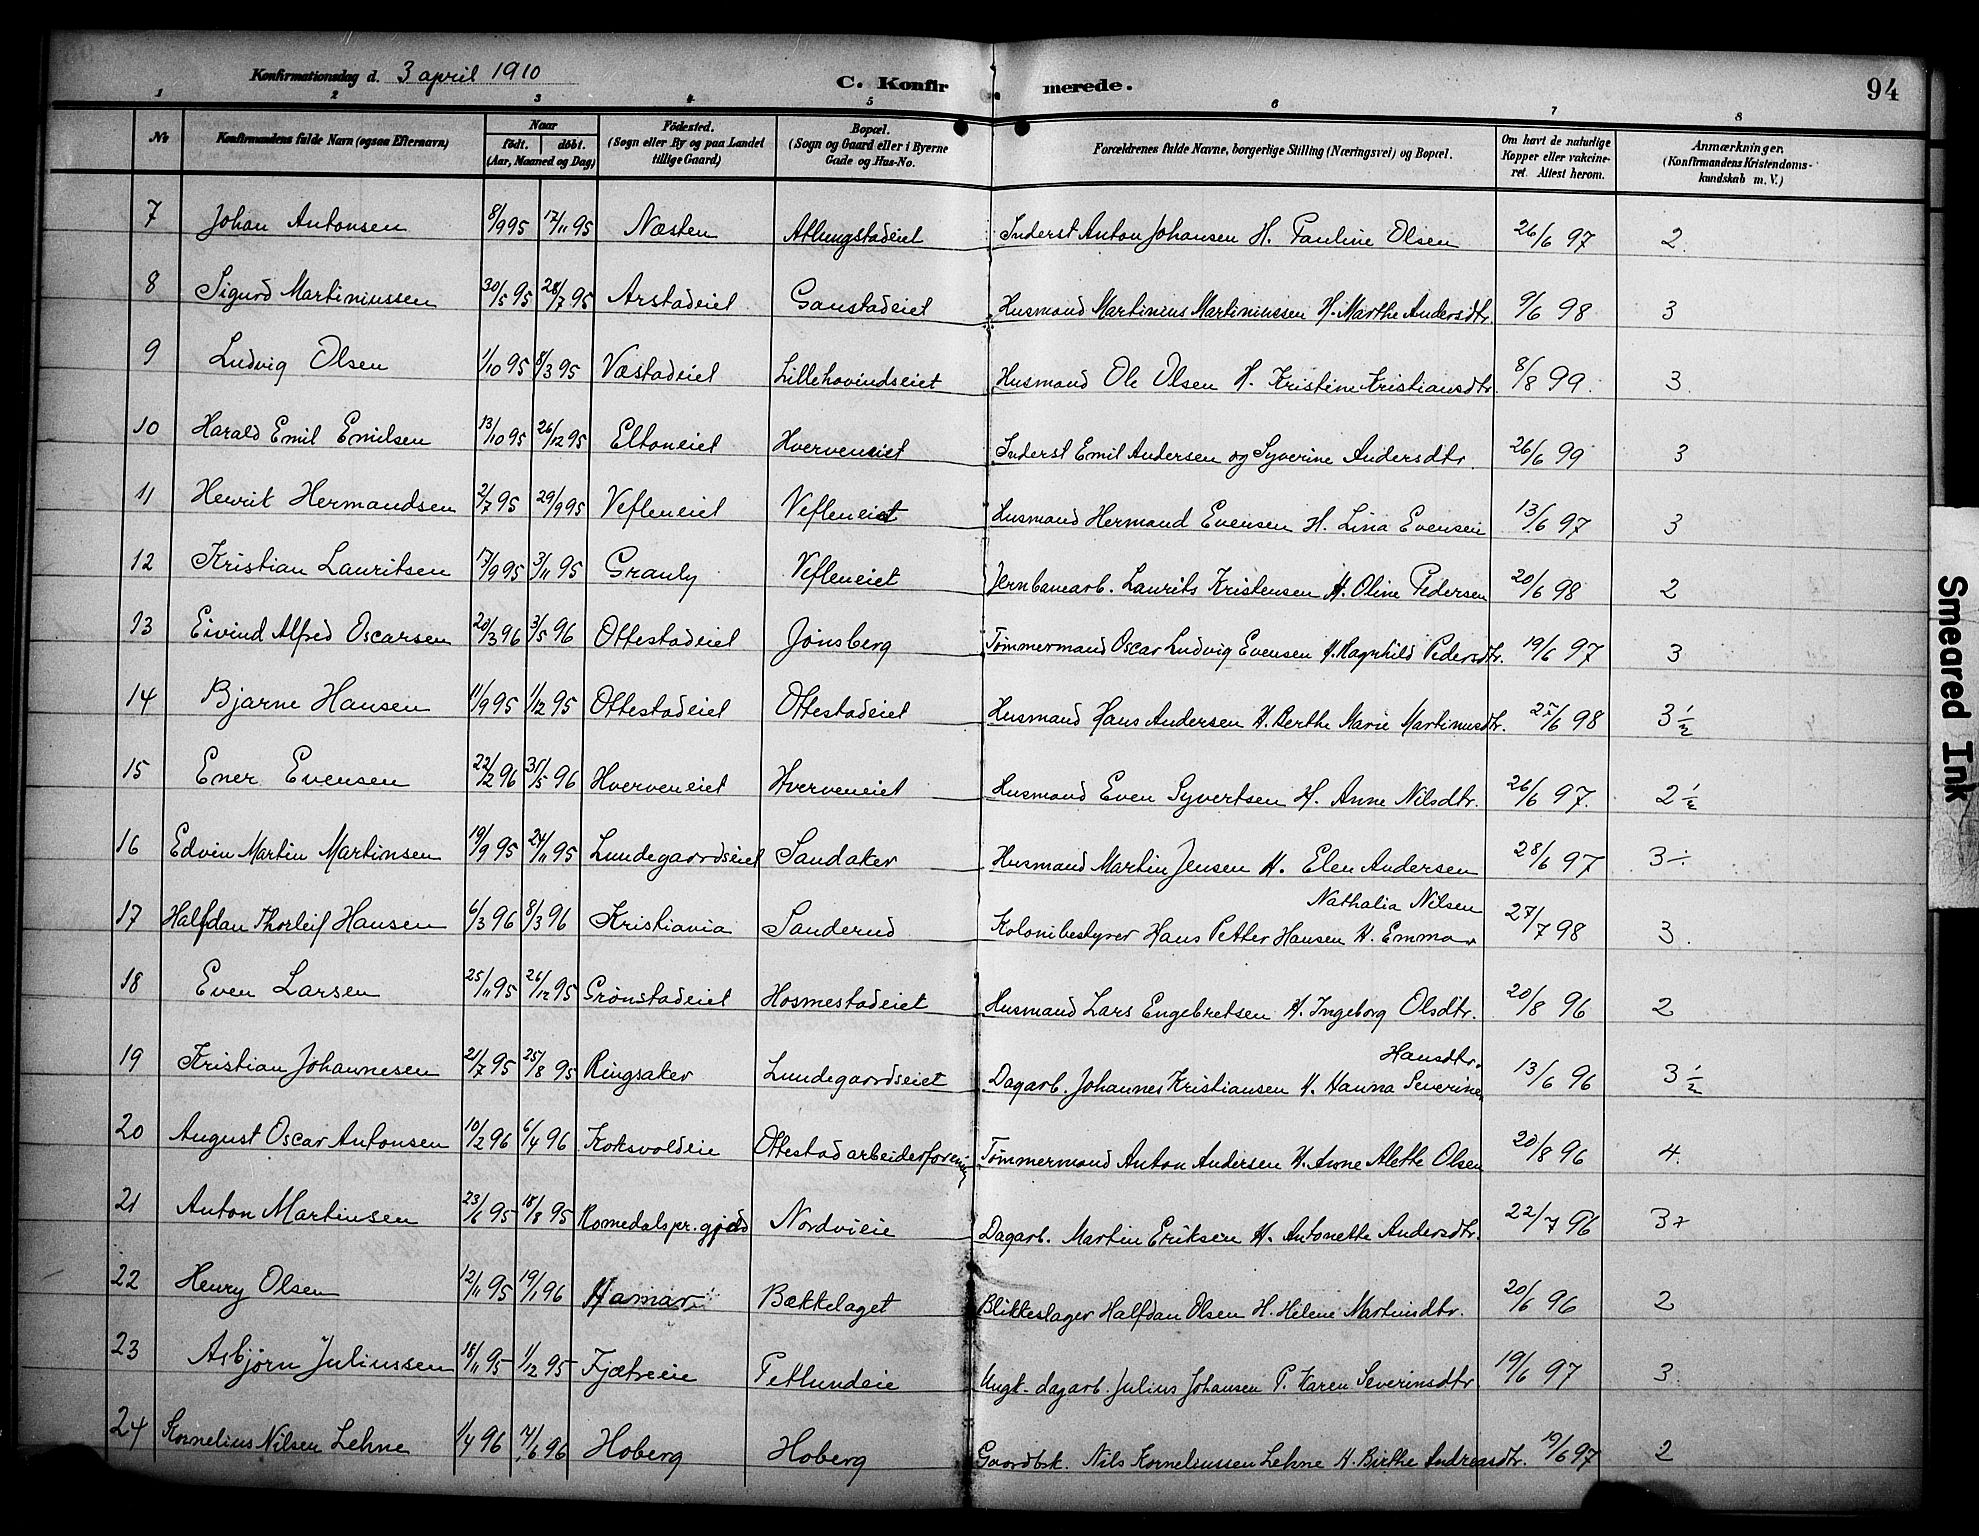 Konfirmationsdag d. 3 april 1910 C. Konfir merede. 94
1 2 3 4 5 6 7 8
No Konfirmandens fulde Navn (ogsaa Efternavn) Naar født. døbt. (Aar, Maaned og Dag) Fødested. (Sogn eller By og paa Landet tillige Gaard) Bopæl. (Sogn og Gaard eller i Byerne Gade og Hus-No. Forældrenes fulde Navne, borgerlige Stilling (Næringsvei) og Bopæl. Om havt de naturlige Kopper eller vakcineret. Attest herom. Anmærkninger. (Konfirmandens Kristendomskundskab m. V.)
7 Johan Antonsen 8/9 95 17/11 95 Næsten Atlungstadeiet Inderst Anton Johansen H. Pauline Olsen 26/6 97 2.
8 Sigurd Martiniussen 30/5 95 28/7 95 Arstadeiet Gaustadeiet Husmand Martinius Martiniussen H. Marthe Andersdtr. 9/6 98 3
9 Ludvig Olsen 1/10 95 8/3 95 Væstadeiet Lillehovindseiet Husmand Ole Olsen H. Kristine Kristiansdtr. 8/8 99. 3.
10 Harald Emil Emilsen 13/10 95 26/12 95 Eltoneiet Hverveneiet Inderst Emil Andersen og Syverine Andersdtr. 26/6 99 3
11 Henrik Hermandsen 2/7 95 29/9 95 Vefleneiet Vefleneiet Husmand Hermand Evensen H. Lina Evensen 13/6 97 3
12 Kristian Lauritsen 17/9 95 3/11 95 Granly Vefleneiet Jernbanearb. Laurits Kristensen H. Oline Pedersen 20/6 98 2
13 Eivind Alfred Oscarsen 20/3 96 3/5 96 Ottestadeiet Jønsberg Tømmermand Oscar Ludvig Evensen H. Ragnhild Pedersdtr. 19/6 97 3
14 Bjarne Hansen 11/9 95 1/12 95 Ottestadeiet Ottestadeiet Husmand Hans Andersen H. Berthe Marie Martinusdtr. 27/6 98 3 1/2
15 Ener Evensen 22/2 96 31/5 96 Hverveneiet Hverveneiet Husmand Even Syvertsen H. Anne Nilsdtr. 26/6 97. 2 1/2
16 Edvin Martin Martinsen 19/9 95 24/11 95 Lundegaardseiet Sandaker Husmand Martin Jensen H. Elen Andersen 28/6 97 3 ÷
Nathalia Nilsen
17 Halfdan Thorleif Hansen 6/3 96 8/3 96 Kristiania Sanderud Kolonibestyrer Hans Petter Hansen H. Emma 27/7 98 3.
18 Even Larsen 25/11 95 26/12 95 Grønstadeiet Hosmestadeiet Husmand Lars Engebretsen H. Ingeborg Olsdtr. 20/8 96 2
Hansdtr.
19 Kristian Johannesen 21/7 95 25/8 95 Ringsaker Lundegaardseiet Dagarb. Johannes Kristiansen H. Hanna Severine 13/6 96 3 1/2
20 August Oscar Antonsen 10/2 96 6/4 96 Koksvoldeie Ottestad arbeiderforening Tømmermand Anton Andersen H. Anne Alette Olsen 20/8 96 4.
21 Anton Martinsen 23/6 95 18/8 95 Romedals pr.gjæld Nordvieie Dagarb. Martin Eriksen H. Antonette Andersdtr. 22/7 96 3 +
22 Henry Olsen 12/11 95 19/1 96 Hamar Bækkelaget Blikkeslager Halfdan Olsen H. Helene Martinsdtr. 20/6 96 2
23 Asbjørn Juliussen 18/11 95 1/12 95 Fjætreeie Petlundeie Ungk. dagarb. Julius Johansen P. Karen Severinsdtr. 19/6 97 3.
24 Kornelius Nilsen Lehne 1/4 96 7/6 96 Hoberg Hoberg Gaardbk. Nils Korneliussen Lehne H. Birthe Andreasdtr. 19/6 97 2
Smeared Ink